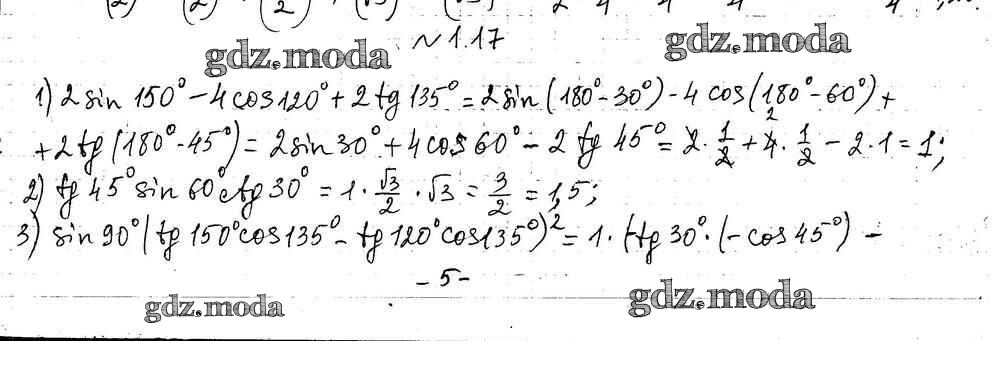 № 1.17
gdz.moda gdz.moda
1) 2 sin 150° - 4 cos 120° + 2 tg 135° = 2 sin (180° - 30°) - 4 cos (180° - 60°) +
+ 2 tg (180° - 45°) = 2 sin 30° + 4 cos 60° - 2 tg 45° = 2 · 1/2 + 4 · 1/2 - 2 · 1 = 1;
2) tg 45° sin 60° ctg 30° = 1 · √3/2 · √3 = 3/2 = 1,5;
3) sin 90° (tg 150° cos 135° - tg 120° cos 135°)² = 1 · (-tg 30° · (-cos 45°) -
- 5 -
gdz.moda gdz.moda